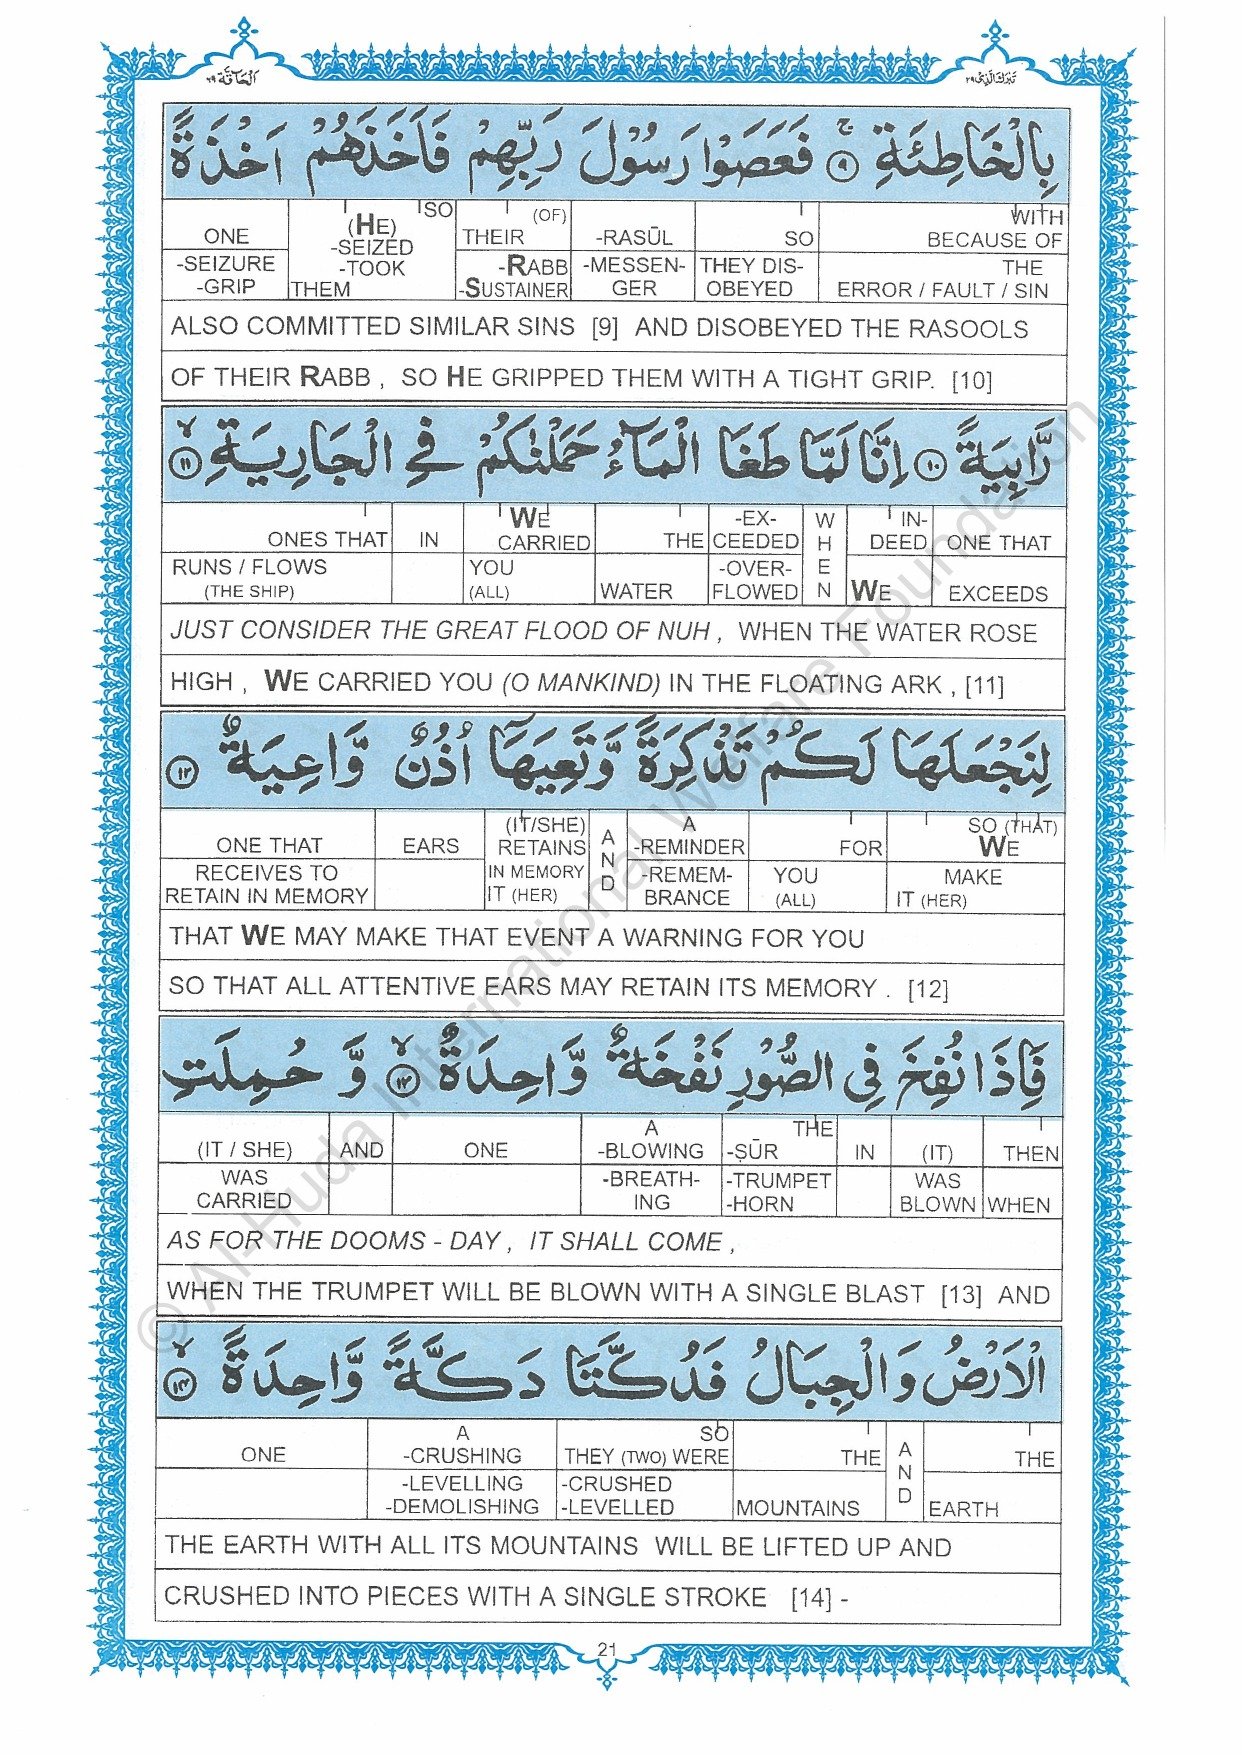 الحآقة ٦٩
تبرك الذی ٢٩
بِالْخَاطِئَةِ ۚ ٩ فَعَصَوْا رَسُوْلَ رَبِّهِمْ فَاَخَذَهُمْ اَخْذَةً
ONE (HE) SO THEIR (OF) -RASŪL SO WITH
-SEIZED BECAUSE OF
-SEIZURE -TOOK -RABB -MESSEN- THEY DIS- THE
-GRIP THEM -SUSTAINER GER OBEYED ERROR / FAULT / SIN
ALSO COMMITTED SIMILAR SINS [9] AND DISOBEYED THE RASOOLS
OF THEIR RABB , SO HE GRIPPED THEM WITH A TIGHT GRIP. [10]
رَّابِيَةً ١٠ اِنَّا لَمَّا طَغَا الْمَآءُ حَمَلْنٰكُمْ فِي الْجَارِيَةِ ۙ ١١
ONES THAT IN WE CARRIED THE -EX- CEEDED WHEN IN- DEED ONE THAT
RUNS / FLOWS YOU -OVER- WE EXCEEDS
(THE SHIP) (ALL) WATER FLOWED
JUST CONSIDER THE GREAT FLOOD OF NUH , WHEN THE WATER ROSE
HIGH , WE CARRIED YOU (O MANKIND) IN THE FLOATING ARK , [11]
لِنَجْعَلَهَا لَكُمْ تَذْكِرَةً وَّتَعِيَهَآ اُذُنٌ وَّاعِيَةٌ ١٢
ONE THAT EARS (IT/SHE) RETAINS AND A -REMINDER FOR SO (THAT) WE
RECEIVES TO IN MEMORY -REMEM- YOU MAKE
RETAIN IN MEMORY IT (HER) BRANCE (ALL) IT (HER)
THAT WE MAY MAKE THAT EVENT A WARNING FOR YOU
SO THAT ALL ATTENTIVE EARS MAY RETAIN ITS MEMORY . [12]
فَاِذَا نُفِخَ فِي الصُّوْرِ نَفْخَةٌ وَّاحِدَةٌ ۙ ١٣ وَّحُمِلَتِ
(IT / SHE) AND ONE A -BLOWING THE -ṢŪR IN (IT) THEN
WAS -BREATH- -TRUMPET WAS
CARRIED ING -HORN BLOWN WHEN
AS FOR THE DOOMS - DAY , IT SHALL COME ,
WHEN THE TRUMPET WILL BE BLOWN WITH A SINGLE BLAST [13] AND
الْاَرْضُ وَالْجِبَالُ فَدُكَّتَا دَكَّةً وَّاحِدَةً ۙ ١٤
ONE A -CRUSHING SO THEY (TWO) WERE THE AND THE
-LEVELLING -CRUSHED
-DEMOLISHING -LEVELLED MOUNTAINS EARTH
THE EARTH WITH ALL ITS MOUNTAINS WILL BE LIFTED UP AND
CRUSHED INTO PIECES WITH A SINGLE STROKE [14] -
21
© Al-Huda International Welfare Foundation